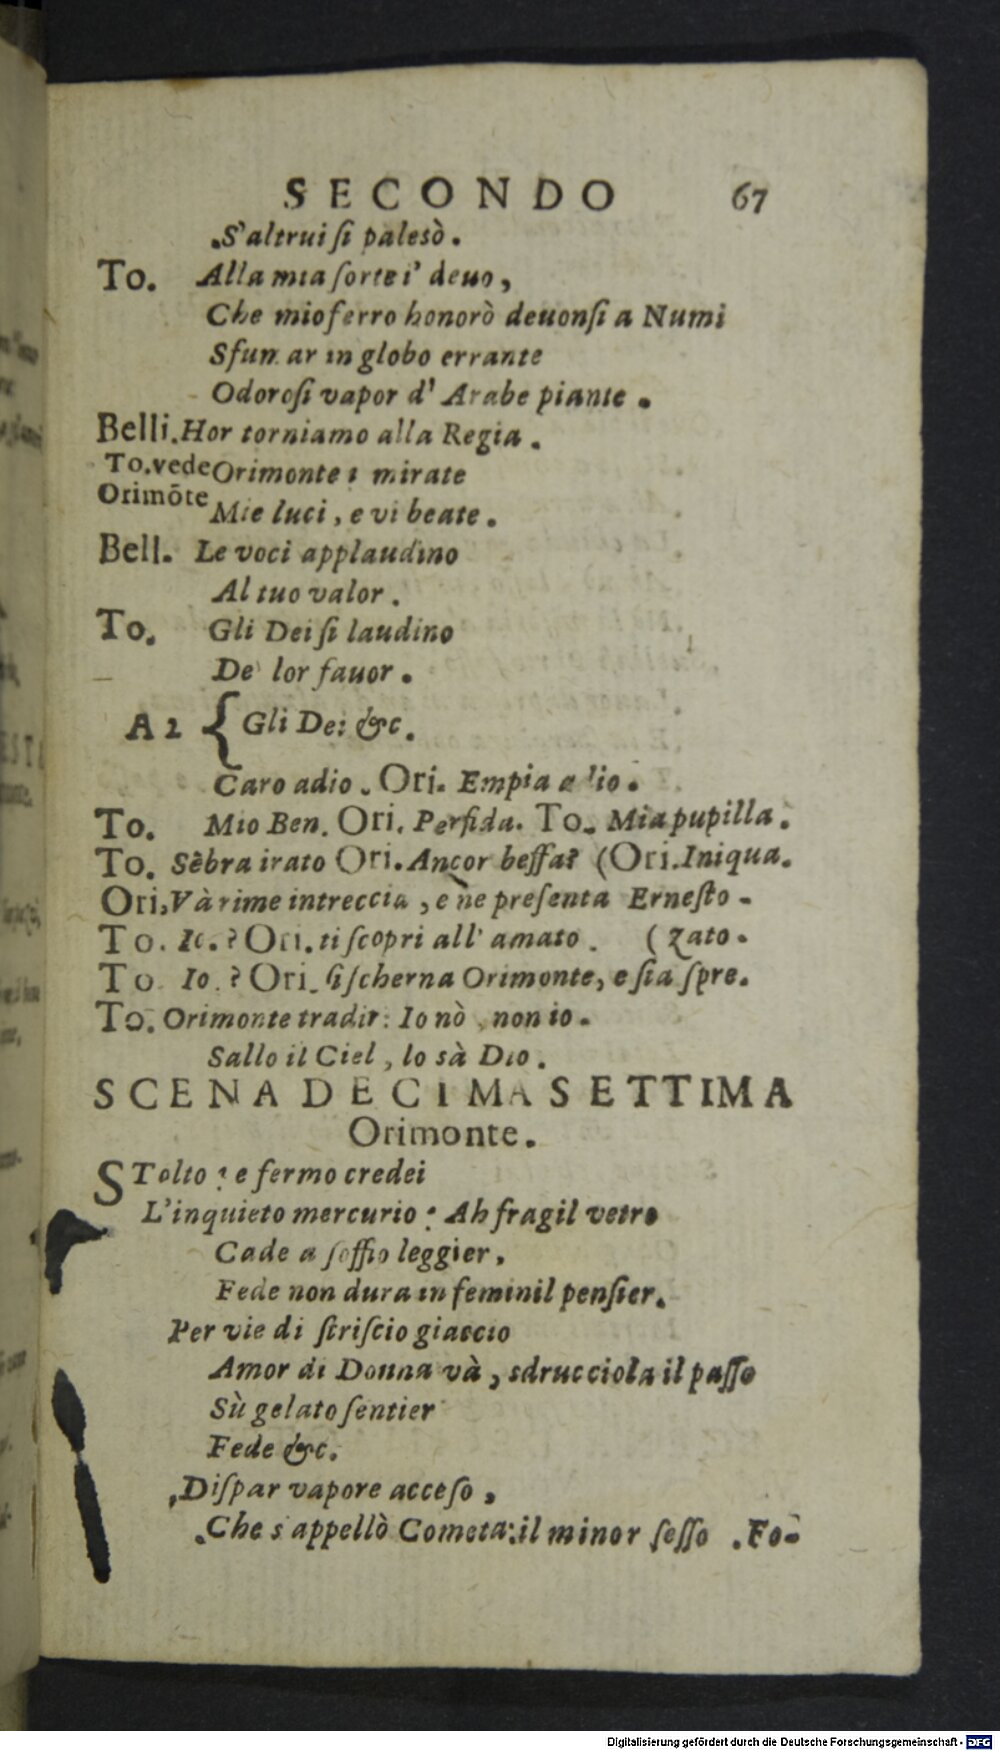 SECONDO 67
S'altrui si palesò.
To. Alla mia sorte i' deuo,
Che mio ferro honorò deuonsi a Numi
Sfumar in globo errante
Odorosi vapor d' Arabe piante.
Belli. Hor torniamo alla Regia.
To. vede Orimonte: mirate
Orimōte Mie luci, e vi beate.
Bell. Le voci applaudino
Al tuo valor.
To. Gli Dei si laudino
De' lor fauor.
A 2 { Gli Dei &c.
Caro adio. Ori. Empia adio.
To. Mio Ben. Ori. Perfida. To. Mia pupilla.
To. Sēbra irato Ori. Ancor beffa? (Ori. Iniqua.
Ori. Và rime intreccia, e ne presenta Ernesto
To. Io.? Ori. ti scopri all' amato. (zato.
To Io.? Ori. si scherna Orimonte, e sia spre.
To. Orimonte tradir: Io nò, non io.
Sallo il Ciel, lo sà Dio.
SCENA DECIMASETTIMA
Orimonte.
STolto: e fermo credei
L'inquieto mercurio: Ah fragil vetro
Cade a soffio leggier,
Fede non dura in feminil pensier.
Per vie di striscio giaccio
Amor di Donna và, sdrucciola il passo
Sù gelato sentier
Fede &c.
Dispar vapore acceso,
Che s'appellò Cometa: il minor sesso. Fo-
Digitalisierung gefördert durch die Deutsche Forschungsgemeinschaft - DFG